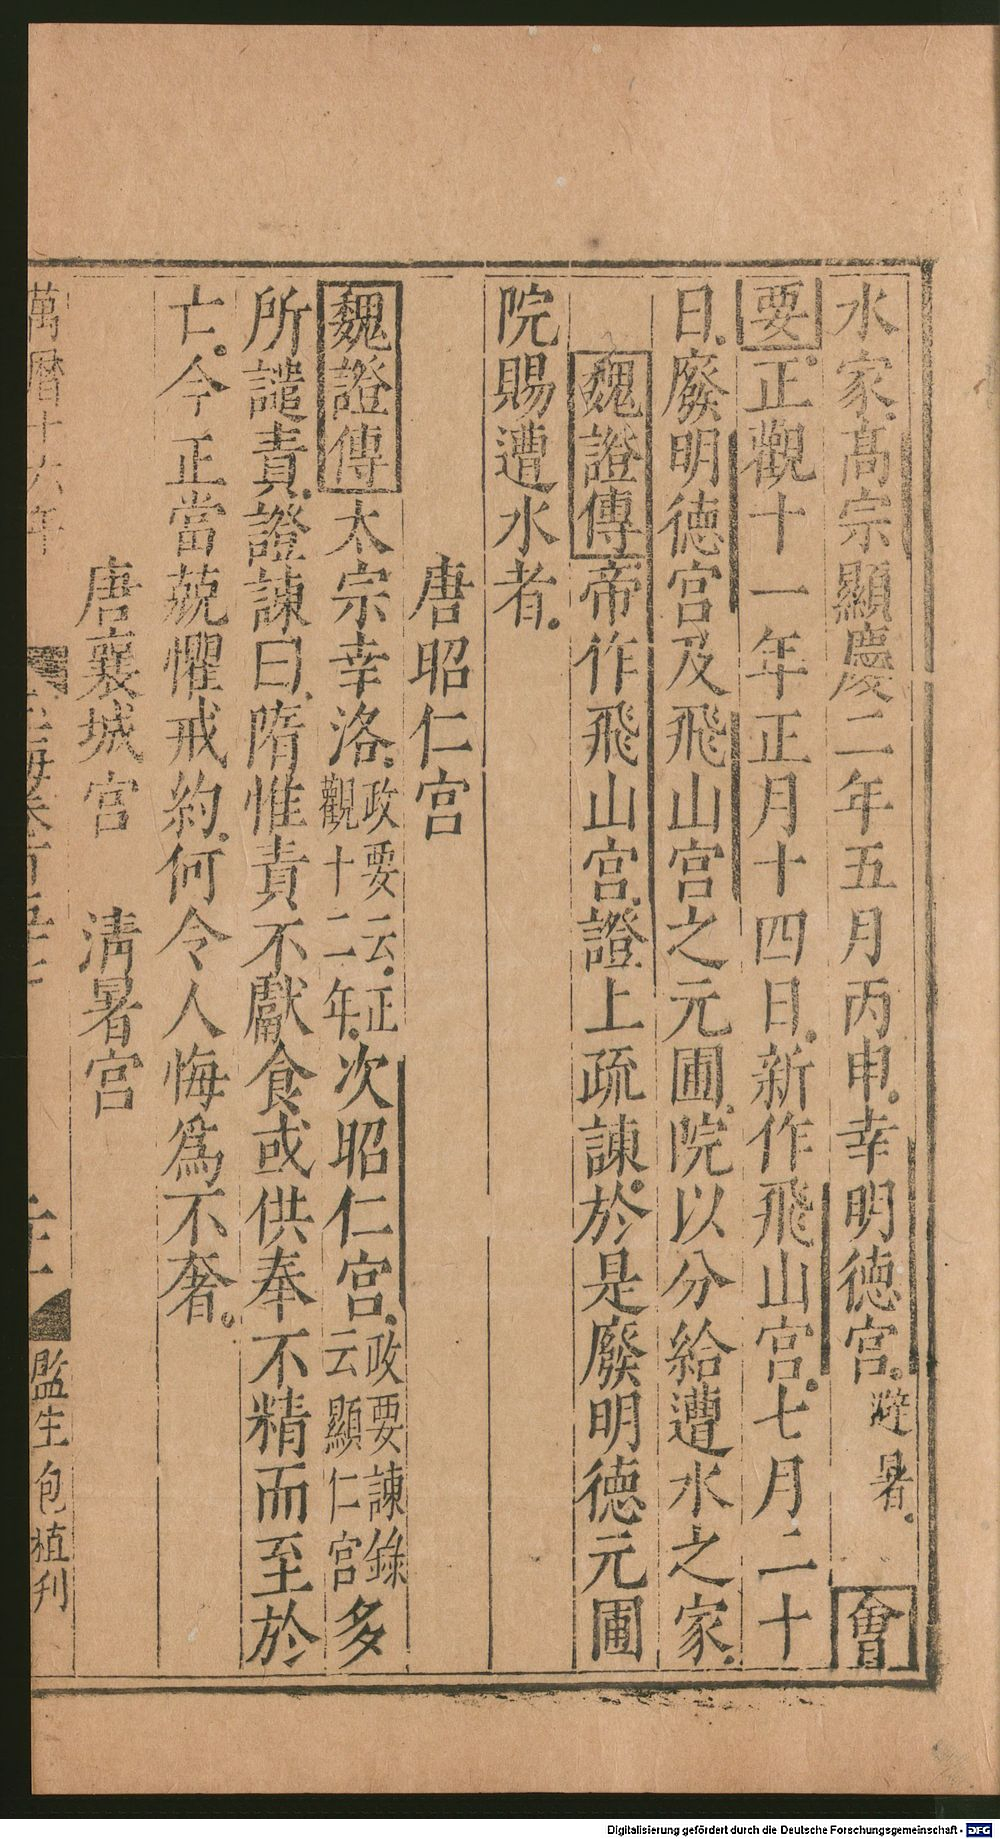 水家高宗顯慶二年五月丙申幸明德宮避暑會
要正觀十一年正月十四日新作飛山宮七月二十
日廢明德宮及飛山宮之元圃院以分給遭水之家
魏證傳帝作飛山宮證上疏諫於是廢明德元圃
院賜遭水者
唐昭仁宮
魏證傳太宗幸洛政要云正觀十二年次昭仁宮政要諫錄云顯仁宮多
所譴責證諫曰隋惟責不獻食或供奉不精而至於
亡今正當兢懼戒約何令人悔為不奢
唐襄城宮 清暑宮
萬曆十六年
監生包植刋
Digitalisierung gefördert durch die Deutsche Forschungsgemeinschaft - DFG